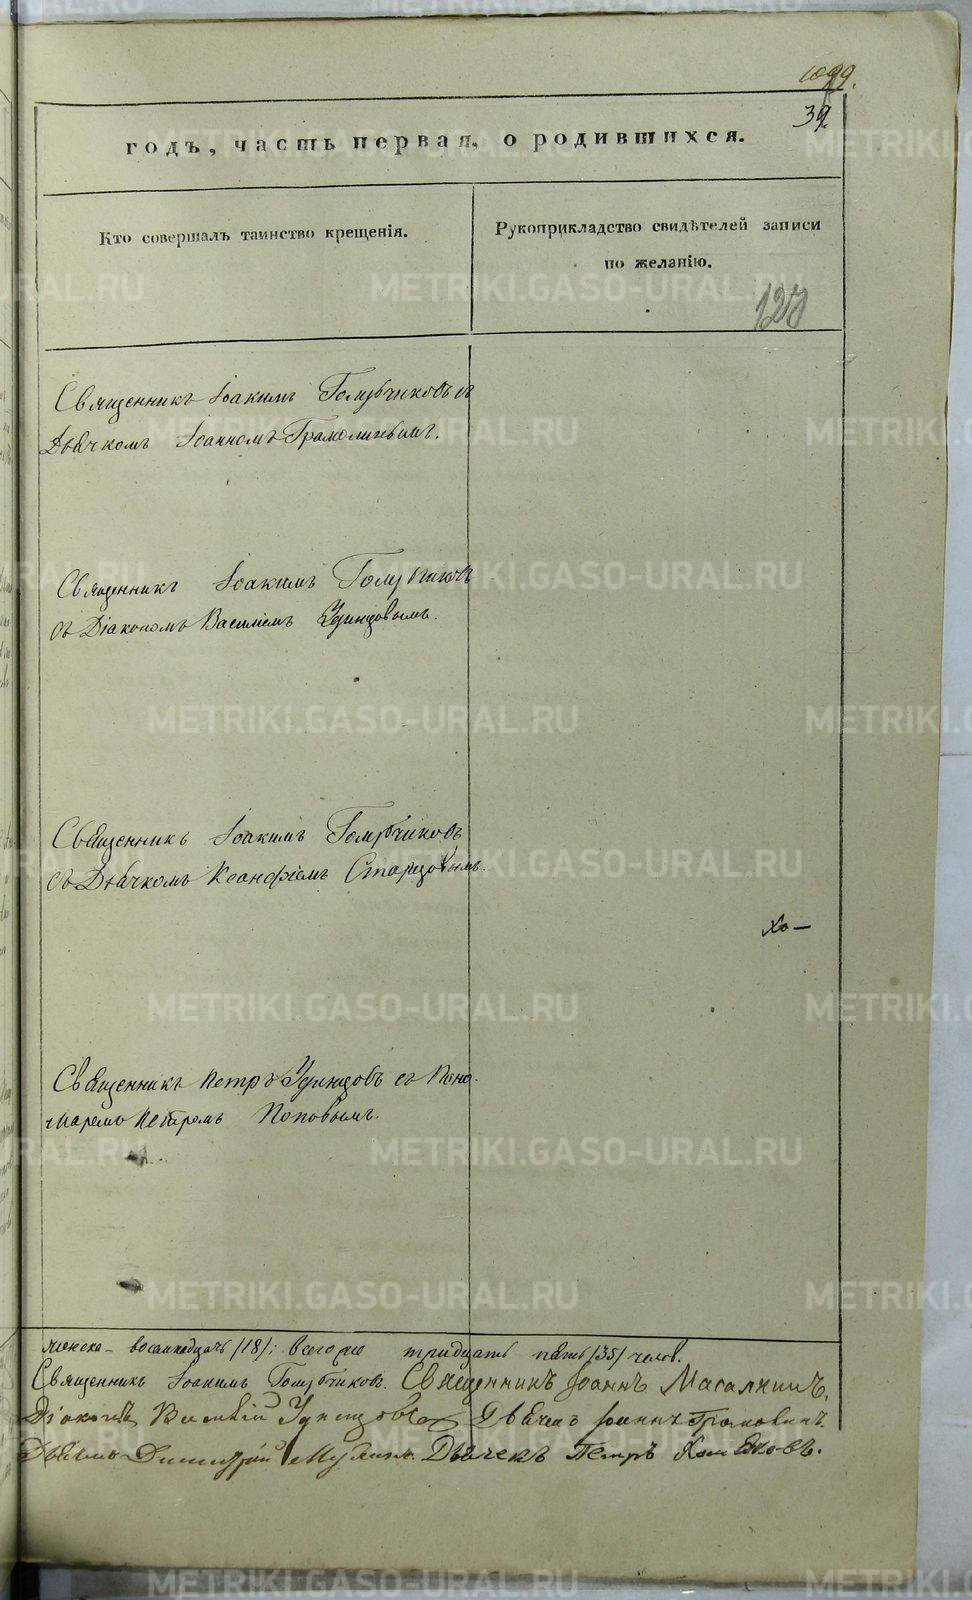 1099.
39.
годъ, часть первая, о родившихся.
Кто совершалъ таинство крещенія.
Рукоприкладство свидѣтелей записи
по желанію.
Священникъ Іоакимъ Голубчиковъ съ
Дьячкомъ Іоанномъ
Священникъ Іоакимъ Голубчиковъ
съ Діакономъ Василіемъ Удинцовымъ.
Священникъ Іоакимъ Голубчиковъ
съ Дьячкомъ Ксанфіемъ Старцовымъ.
Хо—
Священникъ Петръ Удинцовъ съ Поно-
маремъ Петромъ Поповымъ.
женска – восемнадцать /18/; всего тридцать пять /35/ челов.
Священникъ Іоакимъ Голубчиковъ. Священникъ Іоаннъ
Діаконъ Василій Удинцовъ Дьячекъ Іоаннъ
Димитрій Дьячекъ Петръ
METRIKI.GASO-URAL.RU